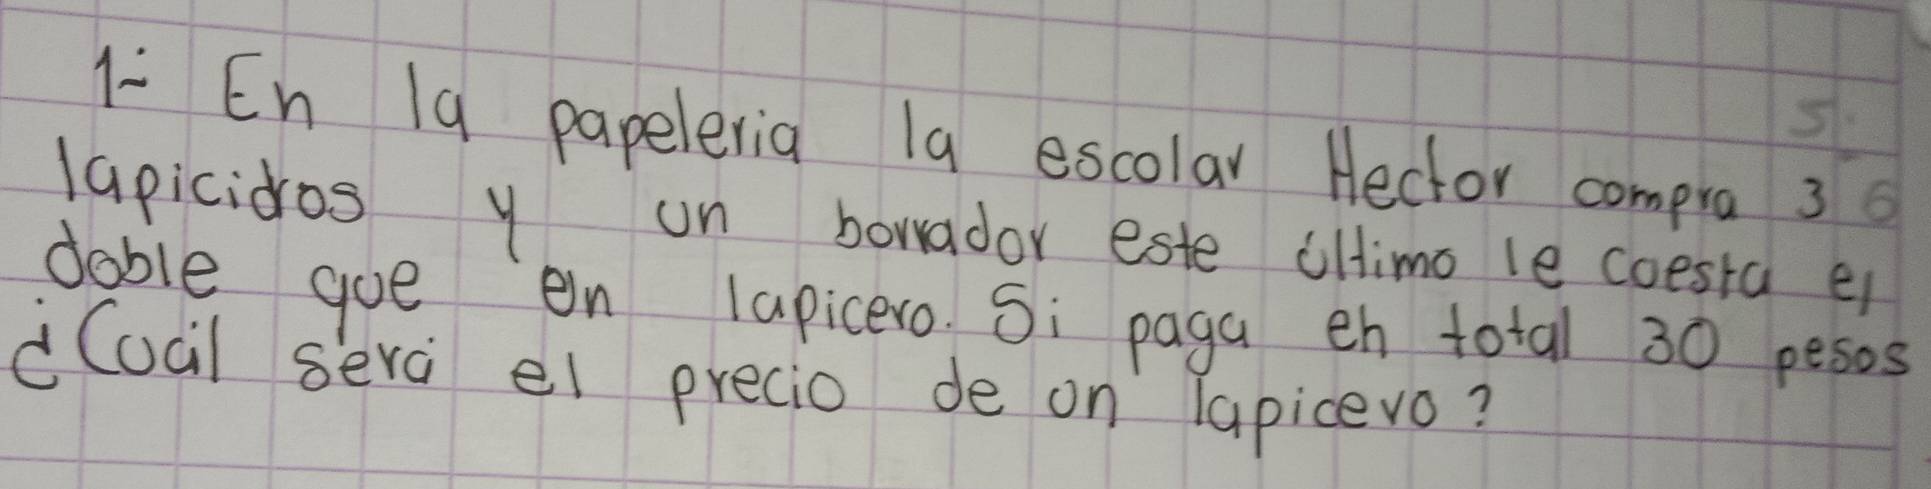 1-. En la papeleria la escolar Hector compra 3
lapicidros y un borrador este último le coesta el
doble que on lapicero. Si paga en total 30 pesos
¿Coál será el precio de on lapicero?